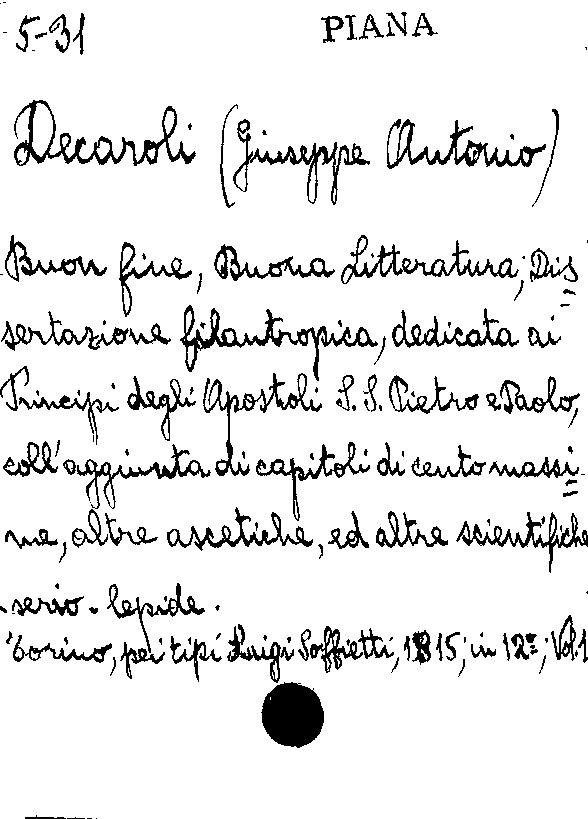 5-31
PIANA
Decaroli (Giuseppe Antonio)
Buon fine, Buona Litteratura; Dis=
sertazione filantropica, dedicata ai
Principi degli Apostoli S.S. Pietro e Paolo,
coll'aggiunta di capitoli di cento massi=
me, altre ascetiche, ed altre scientifiche
serio-lepide.
Torino, pei tipi Luigi Soffietti, 1815; in 12º; Vol.1